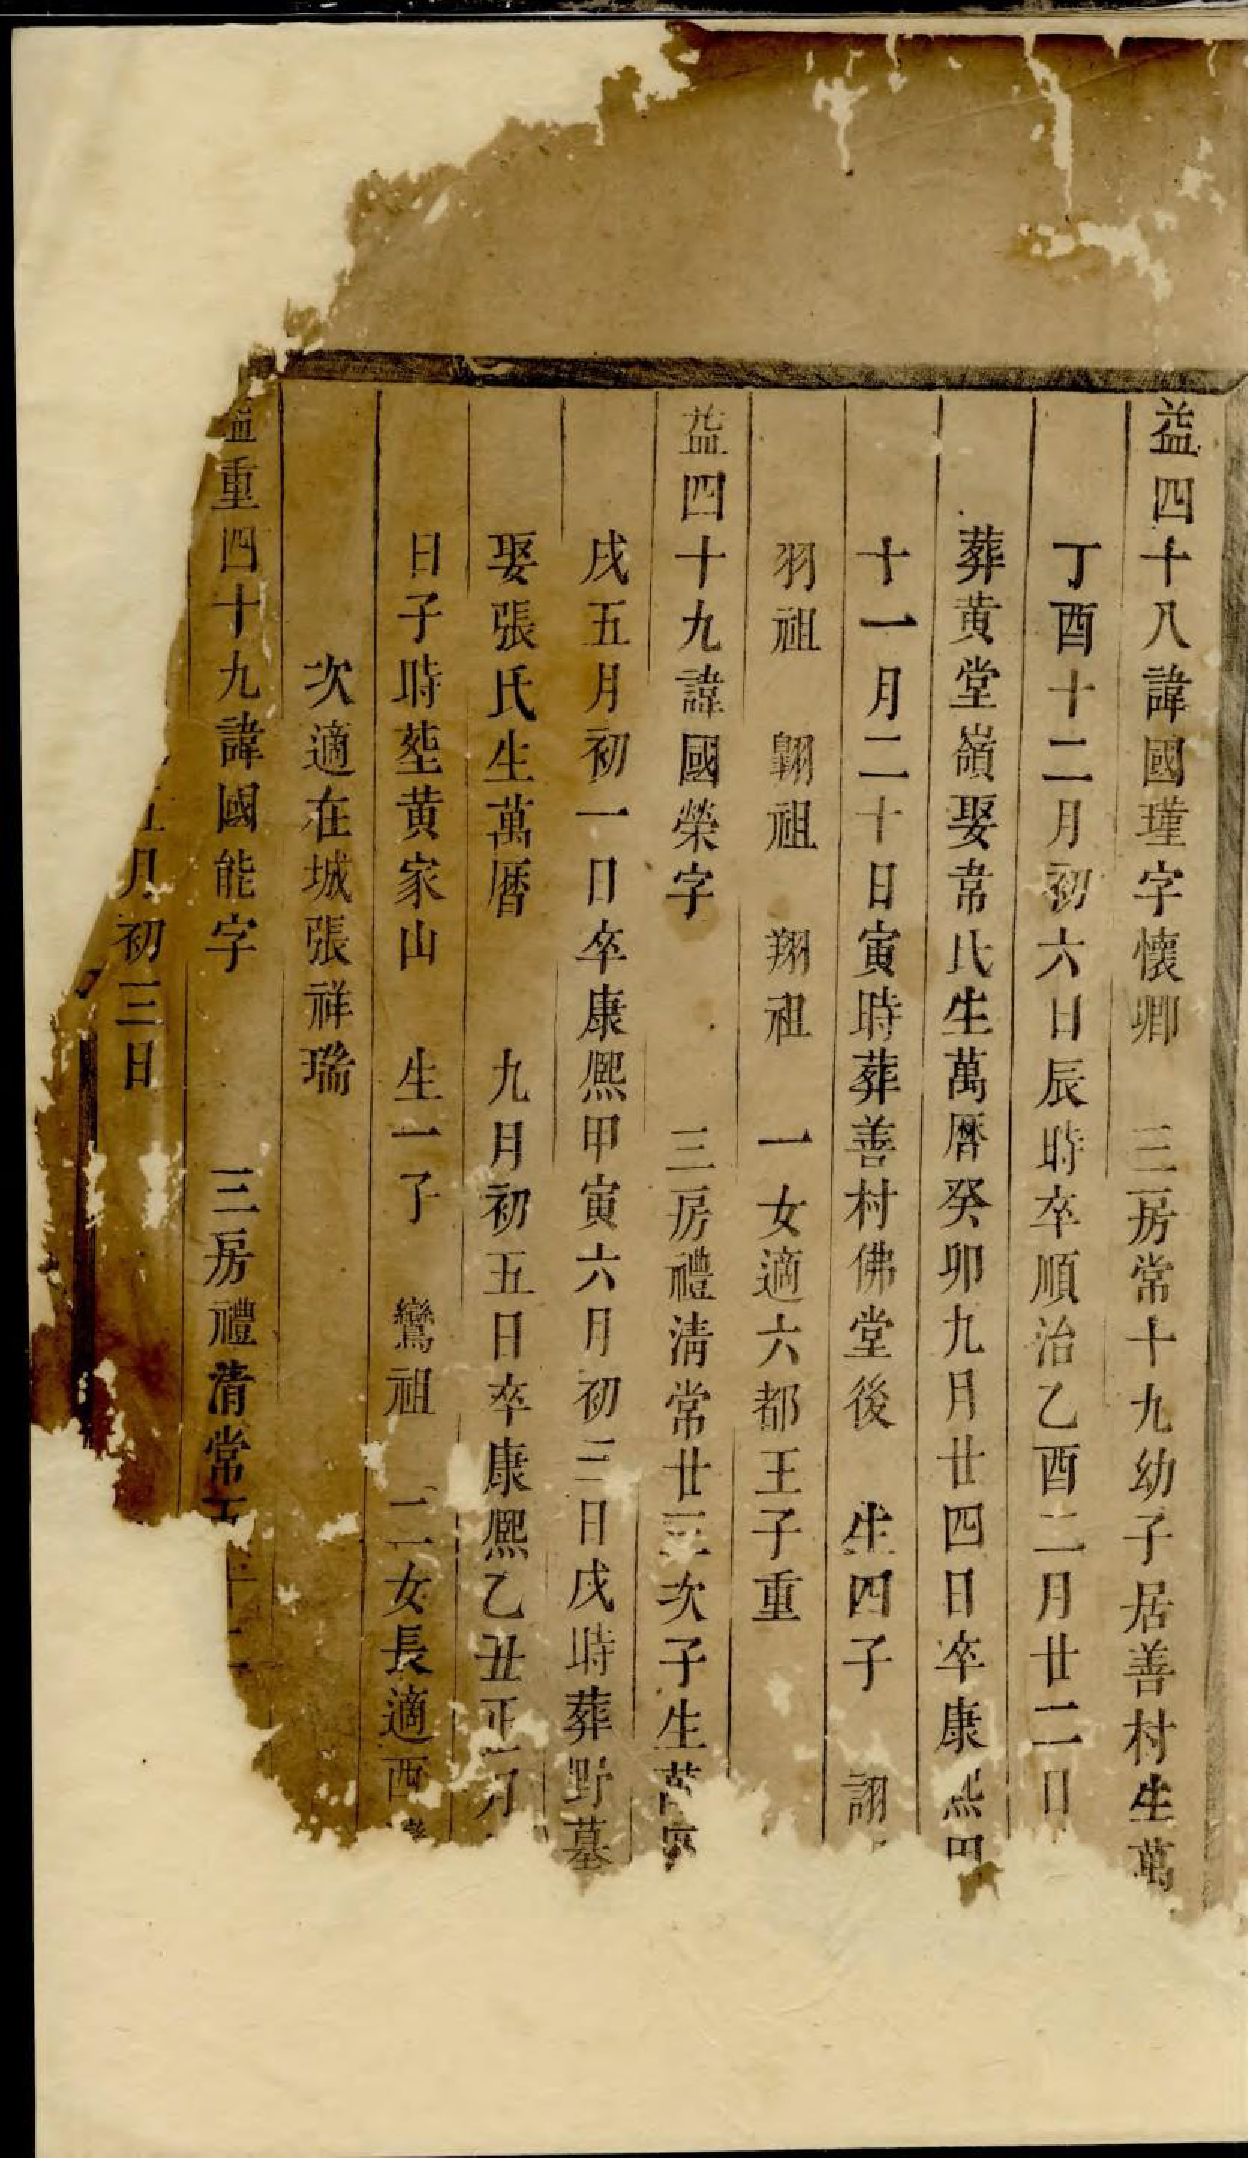 益四十八諱國瑾字懷卿 三房常十九幼子居善村生萬
丁酉十二月初六日辰時卒順治乙酉二月廿二日
葬黄堂嶺娶常氏生萬曆癸卯九月廿四日卒康熙甲
十一月二十日寅時葬善村佛堂後 生四子 詡
羽祖 翺祖 翔祖 一女適六都王子重
益四十九諱國榮字 三房禮淸常廿三次子生萬曆
戌五月初一日卒康熙甲寅六月初三日戌時葬野墓
娶張氏生萬曆 九月初五日卒康熙乙丑正月
日子時塟黄家山 生一子 鸞祖 二女長適西
次適在城張祥瑞
益重四十九諱國能字 三房禮清常 十二
五月初三日